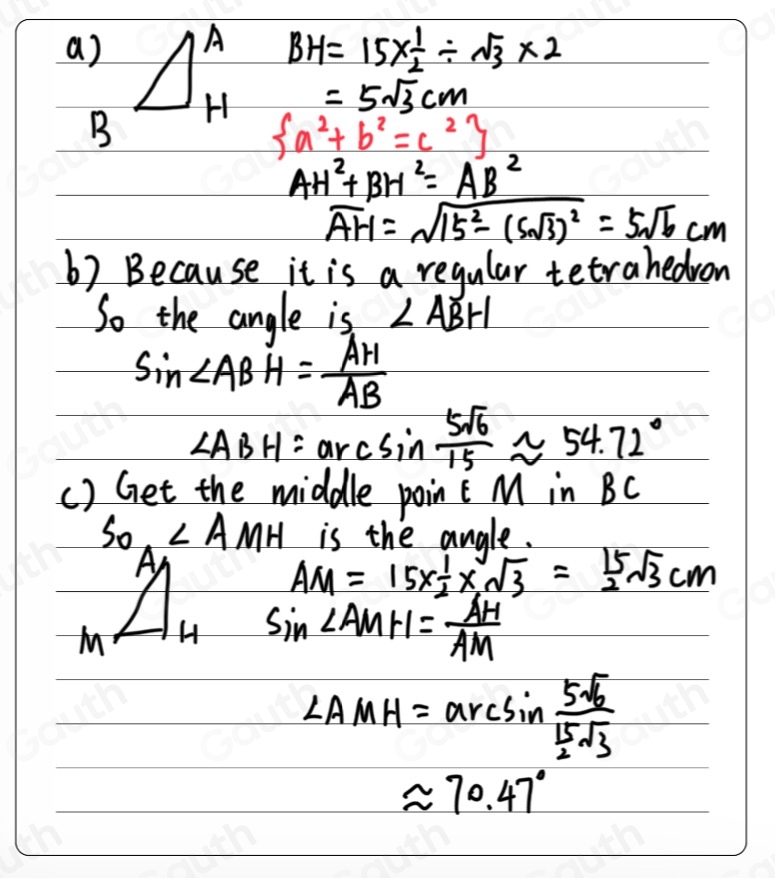 a) A BH = 15 × 1/2 ÷ √3 × 2
B H = 5√3 cm
{a² + b² = c²}
AH² + BH² = AB²
AH = √15² - (5√3)² = 5√6 cm
b) Because it is a regular tetrahedron
So the angle is ∠ABH
Sin∠ABH = AH/AB
∠ABH = arcsin 5√6/15 ≈ 54.72°
c) Get the middle point M in BC
So ∠AMH is the angle.
A AM = 15 × 1/2 × √3 = 15/2 √3 cm
M H Sin∠AMH = AH/AM
∠AMH = arcsin 5√6 / 15/2 √3
≈ 70.47°
Gauth